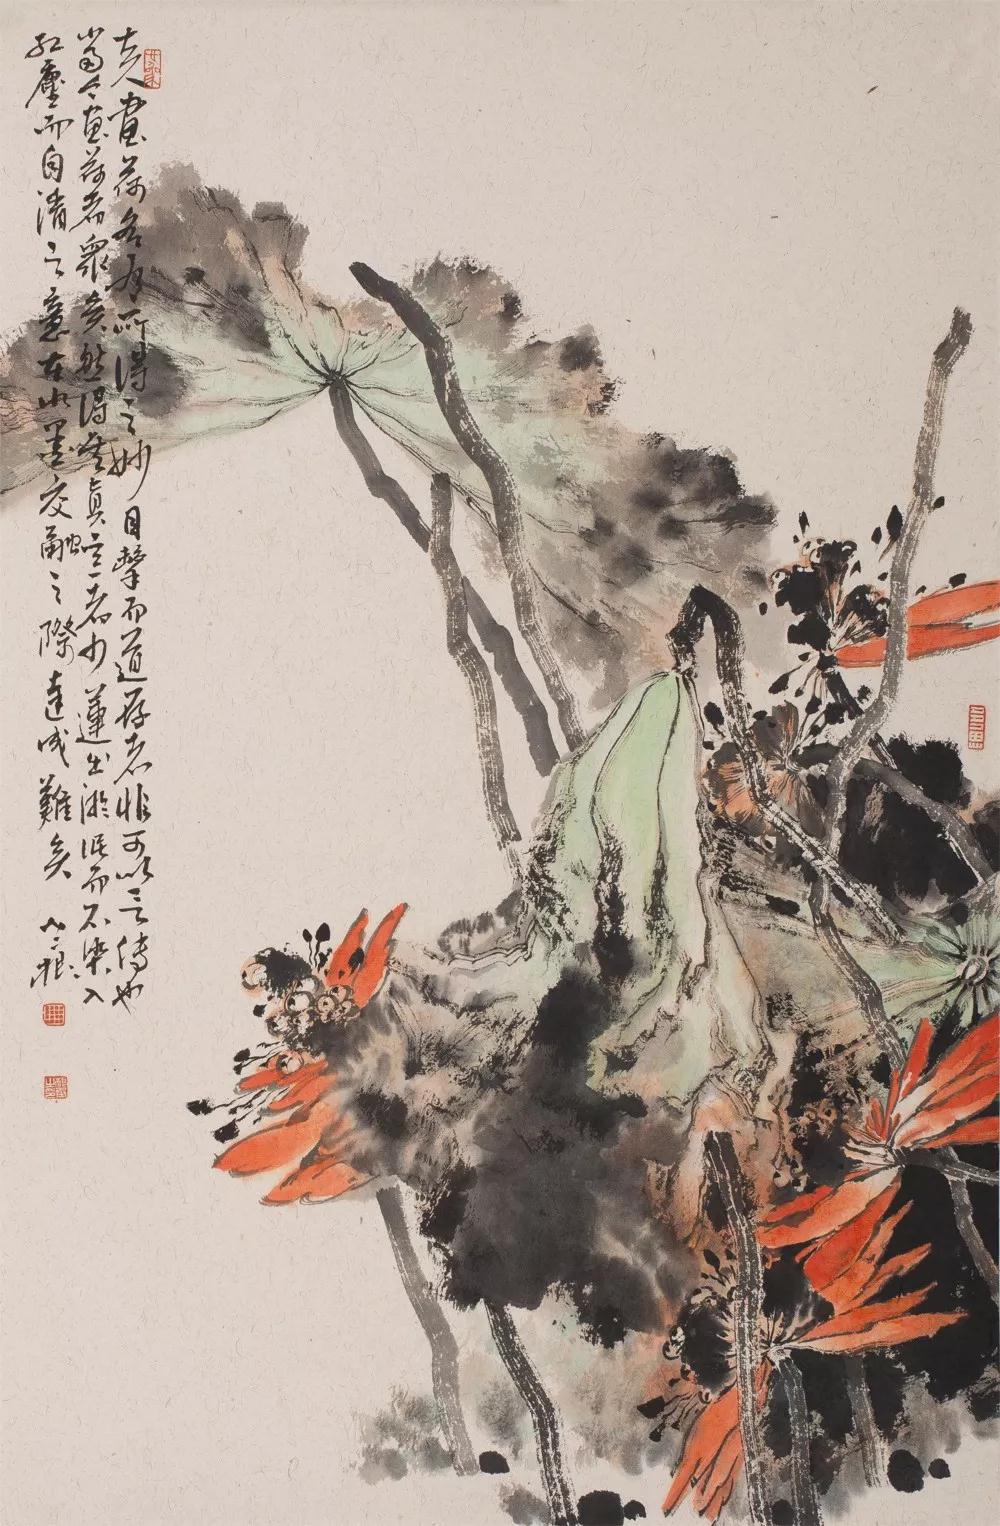 古人畫荷各有所得之妙目擊而道存者非可以言傳也
當今畫荷者衆矣然得其真意者少蓮出淤泥而不染入
紅塵而自清之意在水墨交融之際達成難矣